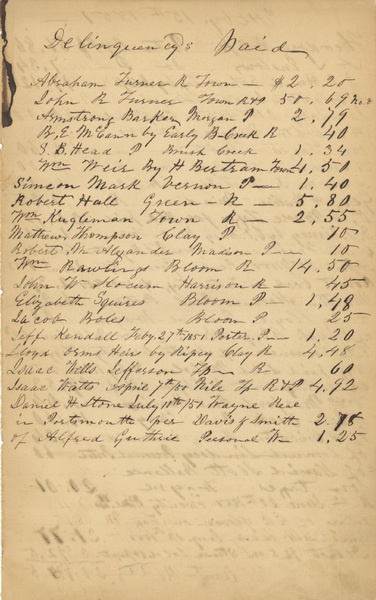 Delinquency's Paid
Abraham Turner R Town — $2.20
John R Turner Town R & P 50.69
Armstrong Barker Morgan P 2.79
B, E McCann by Early B. Creek R 40
S. B. Head P Brush Creek 1.34
Wm Weir By H Bertram Town 4.50
Simeon Mark Vernon P — 1.40
Robert Hall Green — R — 5.80
Wm Kugleman Town R — 2.55
Mathew Thompson Clay P 10
Robert M Alexander Madison P — 10
Wm Rawlings Bloom R 14.50
John W Slocum Harrison R — 45
Elizabeth Squires Bloom P — 1.48
Jacob Boles Bloom P 25
Jeff Kendall Feby. 27th 1851 Porter. P — 1.20
Lloyd Orms Heir by Ripey Clay R 4.48
Isaac Wells Jefferson Tp — R 60
Isaac Watts Aprile 7th 50 Nile Tp R & P 4.92
Daniel H Stone July 10th/51 Wayne Real
in Portsmouth per Davis & Smith 2.78
of Alfred Guthrie Personal W — 1.25